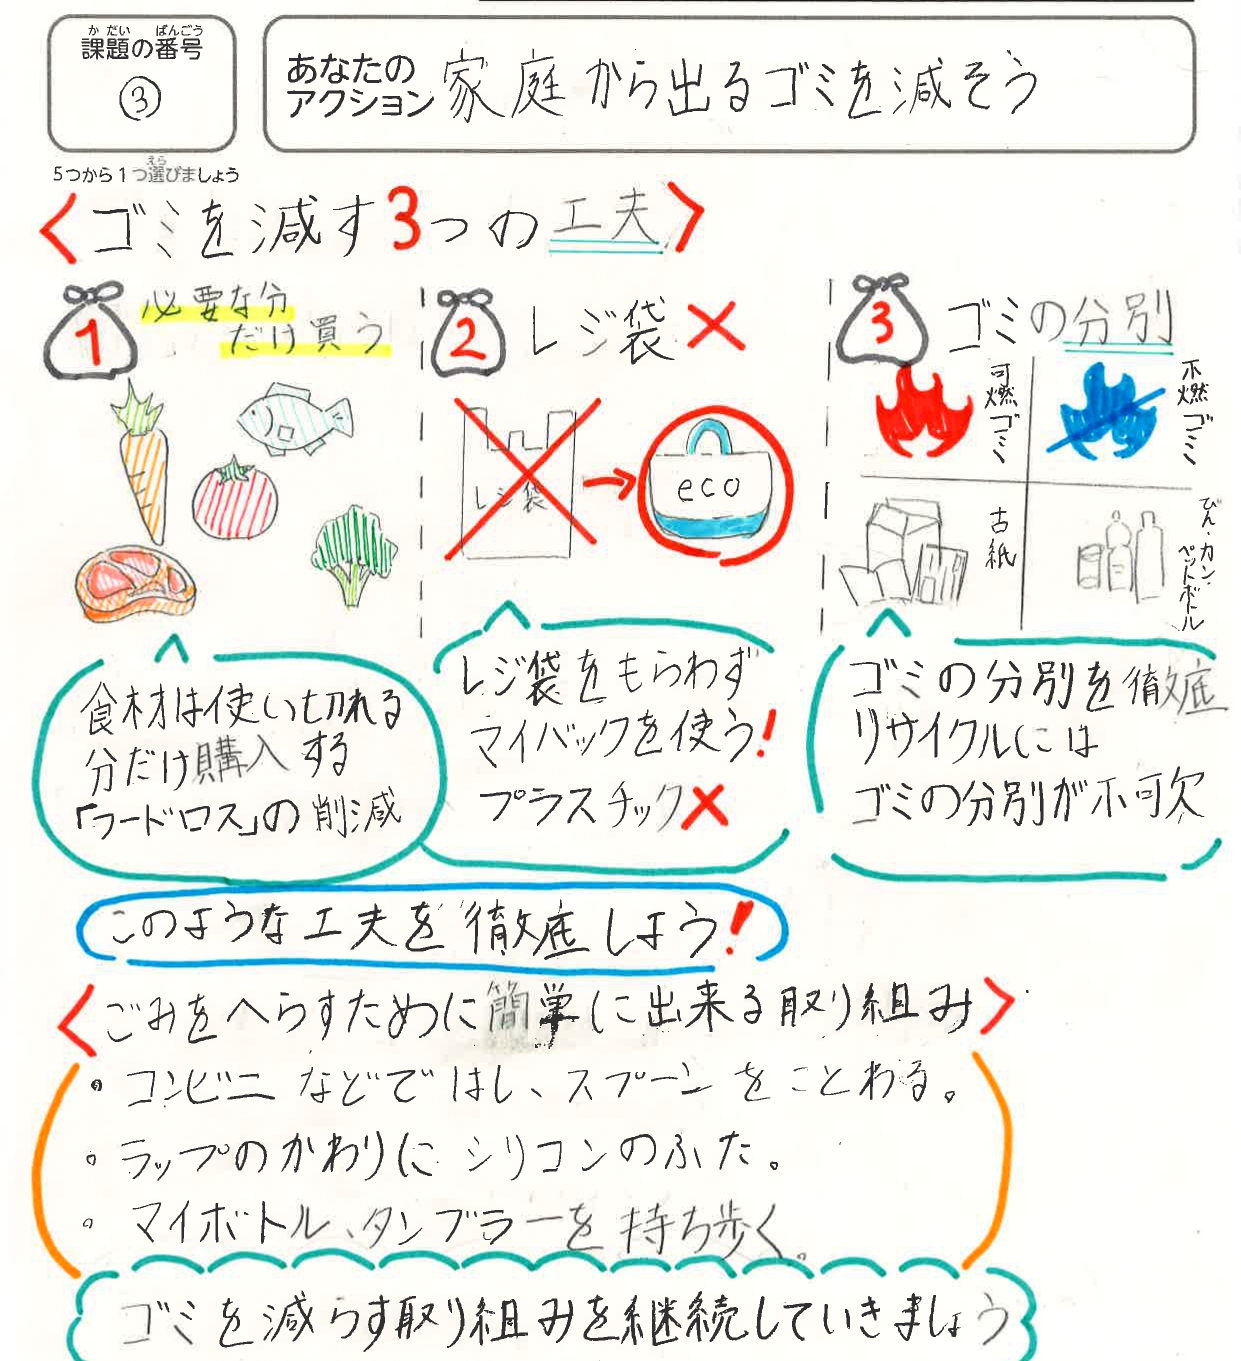 かだい ばんごう
課題の番号
③
あなたの
アクション
家庭から出るゴミを減そう
えら
5つから1つ選びましょう
<ゴミを減す3つの工夫>
1
必要な分
だけ買う
2
レジ袋×
3
ゴミの分別
レジ袋
eco
可燃ゴミ
不燃ゴミ
古紙
びん・カン・
ペットボトル
食材は使い切れる
分だけ購入する
「フードロス」の削減
レジ袋をもらわず
マイバックを使う!
プラスチック×
ゴミの分別を徹底
リサイクルには
ゴミの分別が不可欠
このような工夫を徹底しよう!
<ごみをへらすために簡単に出来る取り組み>
・コンビニなどではし、スプーンをことわる。
・ラップのかわりにシリコンのふた。
・マイボトル、タンブラーを持ち歩く。
ゴミを減らす取り組みを継続していきましょう